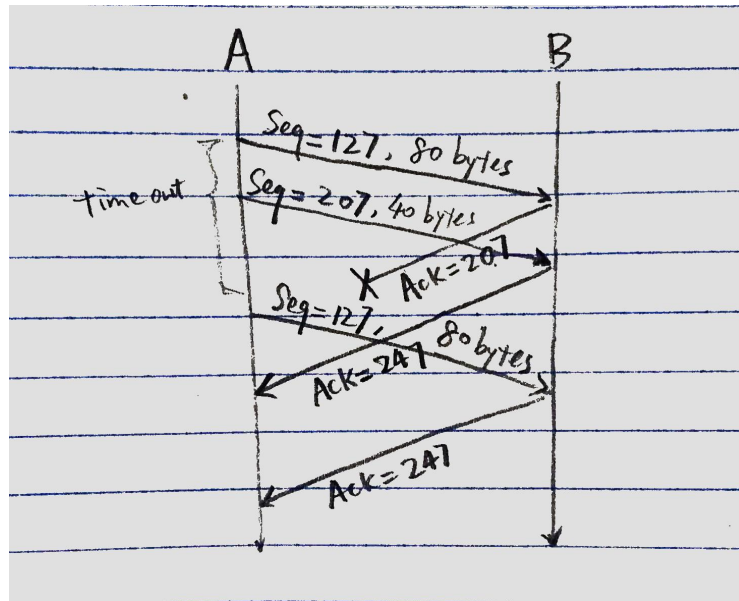 A B
Seq=127, 80 bytes
time out
Seq=207, 40 bytes
Ack=207
Seq=127, 80 bytes
Ack=247
Ack=247